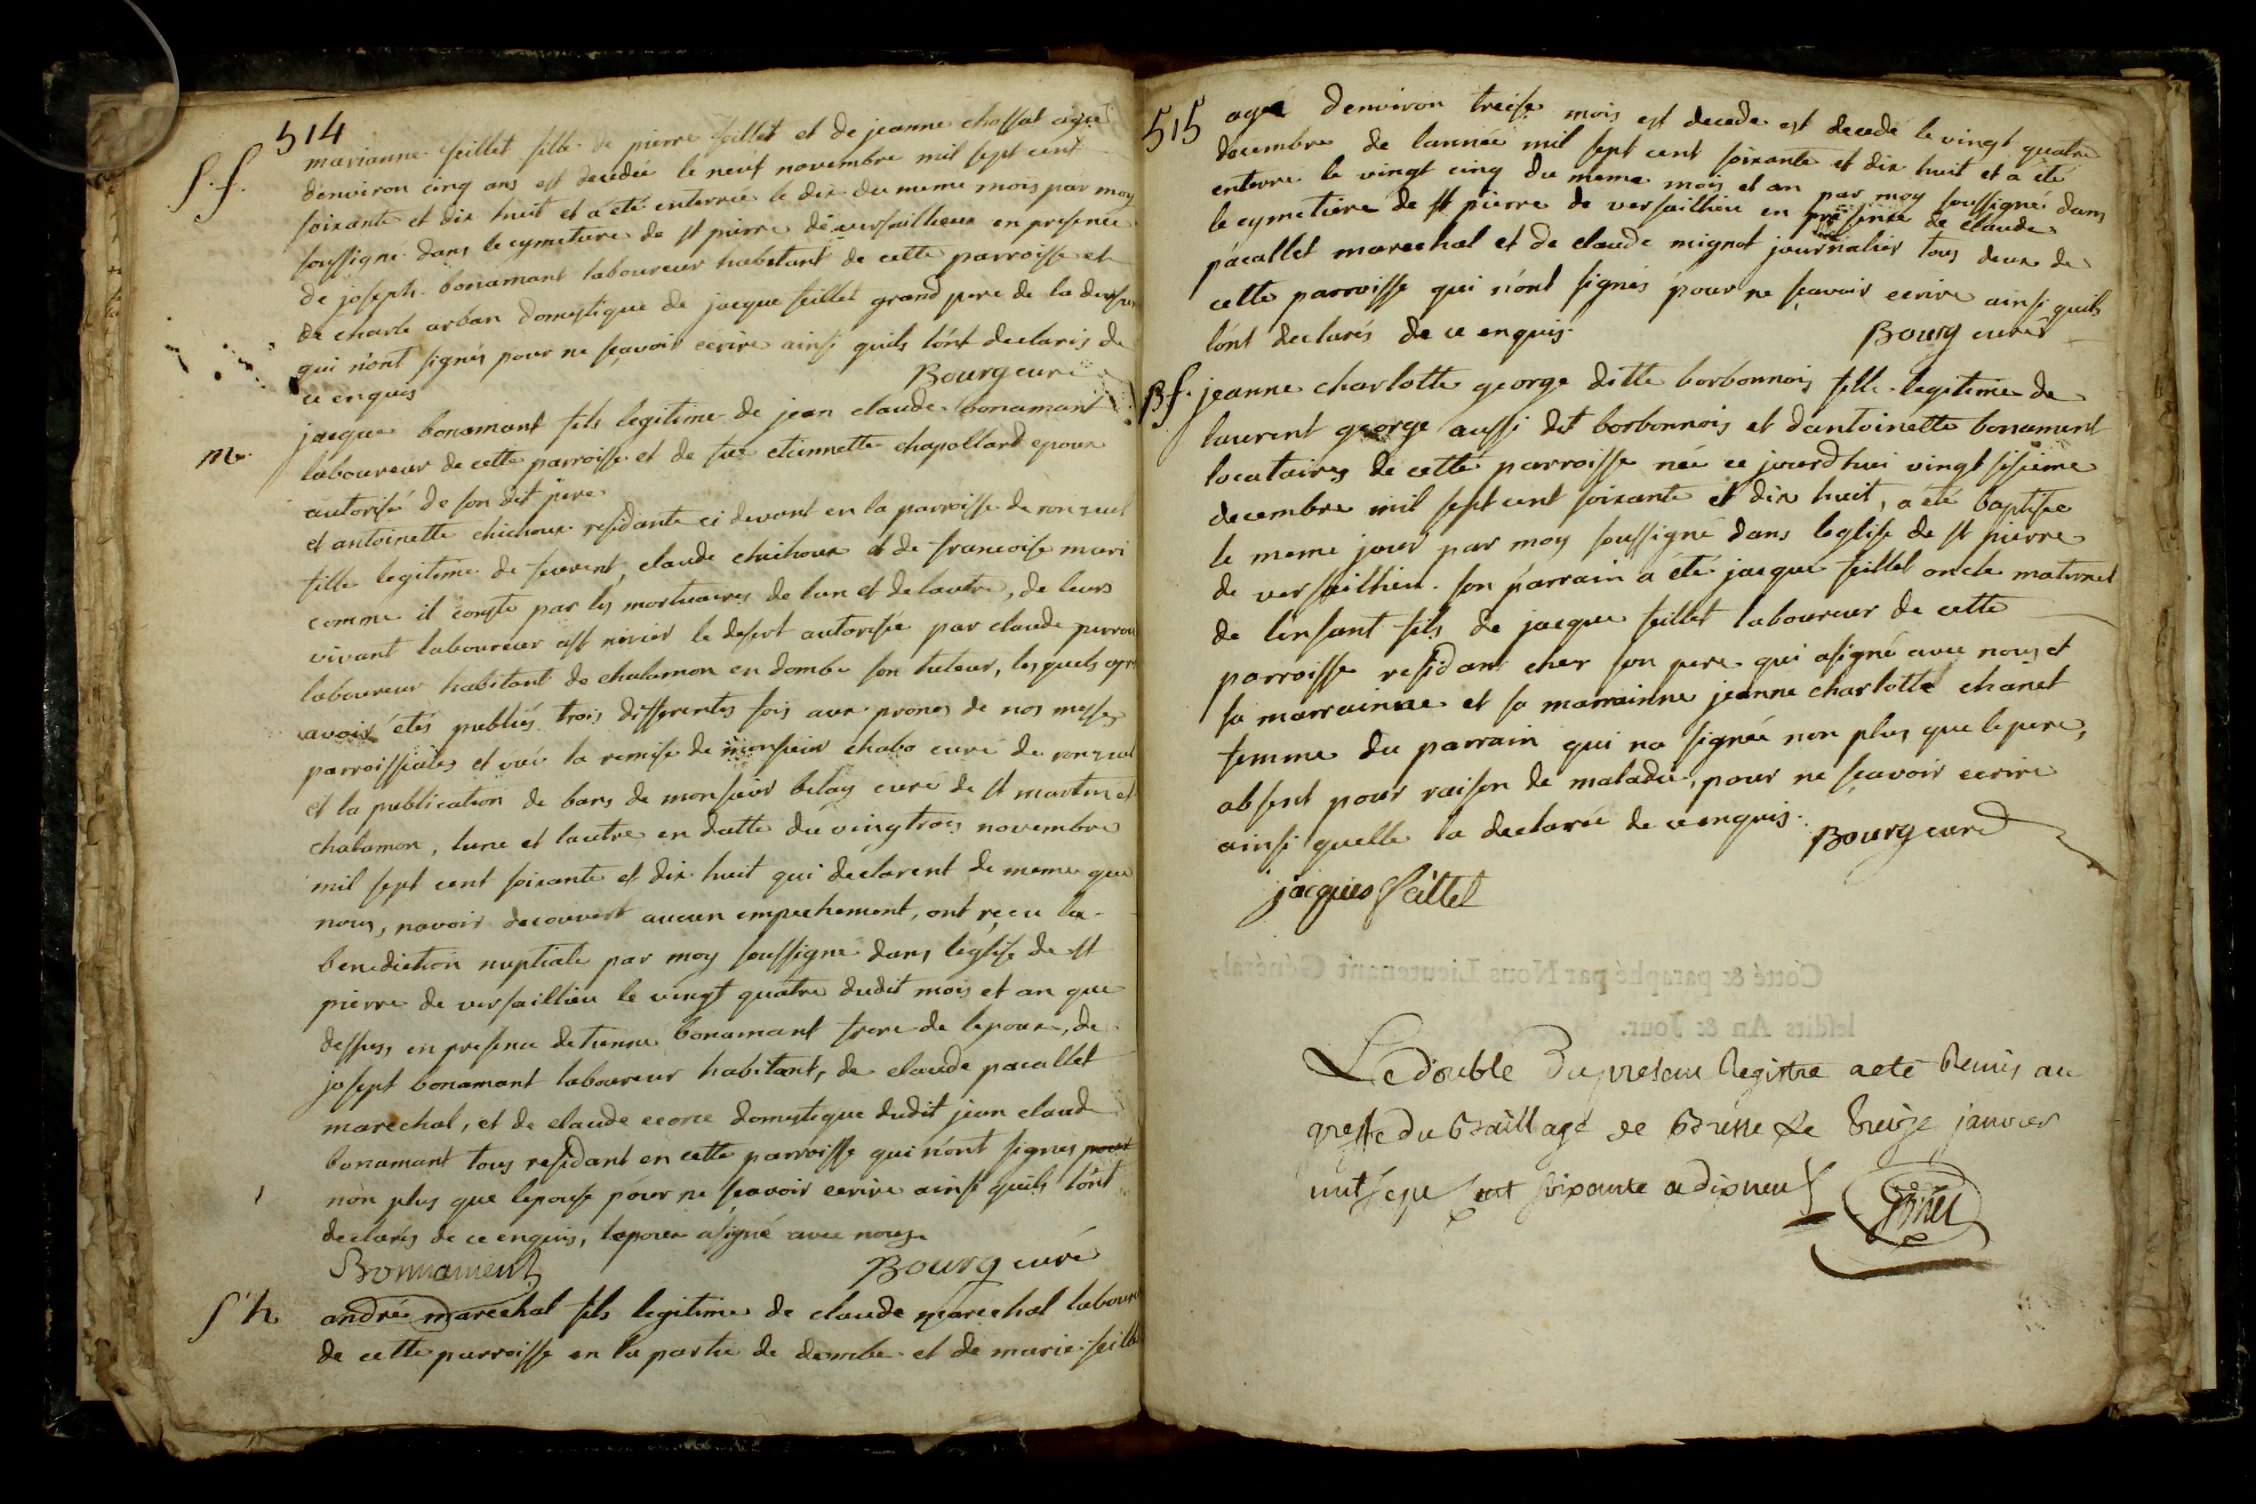 514
S. f.
marianne feillet fille de pierre feillet et de jeanne chossat agée
denviron cinq ans est decedée le neuf novembre mil sept cent
soixante et dix huit et a été enterrée le dix du meme mois par moy
soussigné dans le cymetiere de st pierre de versaillieux en presence
de joseph bonamant laboureur habitant de cette parroisse et
de charle arban domestique de jacque feillet grand pere de la
qui n'ont signés pour ne sçavoir ecrire ainsi quils l'ont declarés de
ce enquis
Bourg curé
m.
jacque bonamant fils legitime de jean claude bonamant
laboureur de cette parroisse et de fue etiennette chapolland epoux
autorisé de son dit pere
et antoinette chichoux residante ci devant en la parroisse de ronzuel
fille legitime de feu claude chichoux et de francoise
comme il conste par les mortuaires de lun et de lautre, de leurs
vivant laboureur a st nizier le desert autorisée par claude
laboureur habitant de chalamon en dombe son tuteur, lesquels
avoir étés publiés trois differentes fois aux prones de nos messes
parroissiales et vüe la remise de monsieur chabo curé de ronzuel
et la publication de bans de monsieur belay curé de st martin et
chalamon, lune et lautre en datte du vingtrois novembre
mil sept cent soixante et dix huit qui declarent de meme que
nous, navoir decouvert aucun empechement, ont reçu la
benediction nuptiale par moy soussigné dans leglise de st
pierre de versaillieu le vingt quatre dudit mois et an que
dessus, en presence detienne bonamant frere de lepoux, de
josept bonamant laboureur habitant, de claude pacallet
marechal, et de claude ecorce domestique dudit jean claude
bonamant tous residant en cette parroisse qui n'ont signes pour
non plus que lepouse pour ne sçavoir ecrire ainsi quils l'ont
declarés de ce enquis, lepoux a signé avec nous
Bonnament
Bourg curé
S h
andré marechal fils legitime de claude marechal
de cette parroisse en la partie de dombe et de marie
515
agé denviron treise mois est decede est decedé le vingt quatre
decembre de lannée mil sept cent soixante et dix huit et a été
enterré le vingt cinq du meme mois et an par moy soussigné dans
le cymetiére de st pierre de versaillieu en presence de claude
pacallet marechal et de claude mignot journalier tous deux de
cette parroisse qui n'ont signés pour ne sçavoir ecrire ainsi quils
l'ont declarés de ce enquis.
Bourg curé
B f.
jeanne charlotte george ditte borbonnois fille legitime de
laurent george aussi dit borbonnois et dantoinette bonamant
locataires de cette parroisse née ce jourdhui vingt sisieme
decembre mil sept cent soixante et dix huit, a été baptisée
le meme jour par moy soussigné dans leglise de st pierre
de versaillieu. son parrain a été jacque feillet oncle maternel
de lenfant fils de jacque feillet laboureur de cette
parroisse residant cher son pere qui a signé avec nous et
sa marrainne et sa marrainne jeanne charlotte chanel
femme du parrain qui na signée non plus que le pere,
absent pour raison de maladie, pour ne sçavoir ecrire
ainsi quelle la declarée de ce enquis.
Bourg curé
jacques faillet
Cotté & paraphé par Nous Lieutenant Général,
lesdits An & Jour.
Le double Du present Registre a eté Remis au
greffe du Baillage de Bresse Le treize janvier
mil sept cent soixante et dix neuf